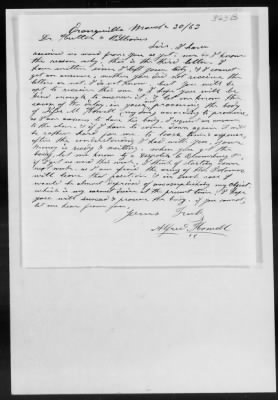 363B
March 20/62
Dr. &
Sirs, I have
received no word from you as yet, nor do I know
the reason why, this is the third letter I
have written since I left you.
get an answer, whether you did not receive the
letters or not I do not know, but you will be
apt to receive this one & I hope you will be
kind enough to answer it & let me know the
cause of the delay, in your procuring the body
of
as I am anxious to have his body, I request an answer
to the above, & if I have to come down again it will
be rather hard for me to bear there expense,
after the understanding I had with you, your
money is ready & waiting, when you get the
body, let me know by a Despatch to Bloomsburg
if I get no word this week, I think of starting down
next week, as I am afraid the army of the Potomac
will leave that position, in such case I
would be almost deprived of accomplishing my object
which is my earnest desire at the present time. I hope
you will succeed & procure the body, if you cannot,
let me hear from you,
Yours Truly
Alfred Howell